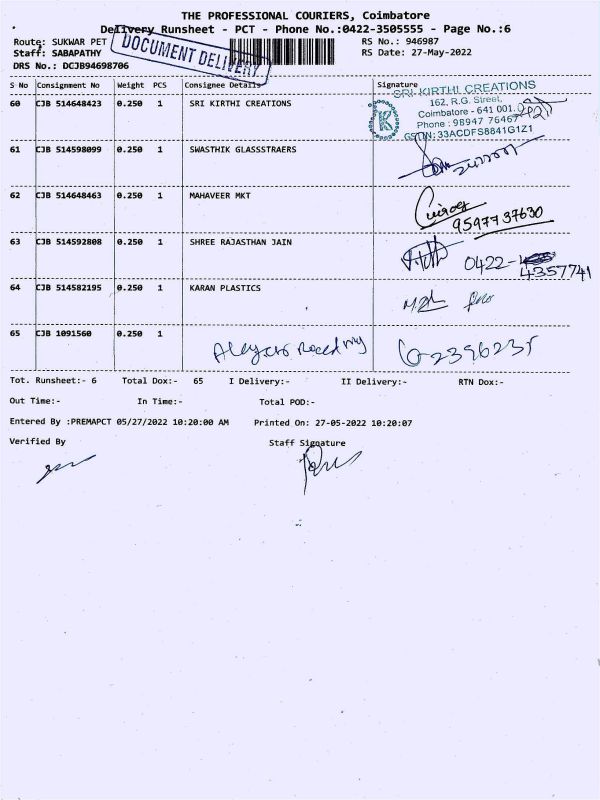 THE PROFESSIONAL COURIERS, Coimbatore
Delivery Runsheet - PCT - Phone No.:0422-3505555 - Page No.:6
Route: SUKWAR PET
RS No.: 946987
Staff: SABAPATHY
RS Date: 27-May-2022
DOCUMENT DELIVERY
DRS No.: DCJB94698706
S No Consignment No Weight PCS Consignee Details Signature
60 CJB 514648423 0.250 1 SRI KIRTHI CREATIONS
SRI KIRTHI CREATIONS
162, R.G. Street,
Coimbatore - 641 001.
Phone : 98947 76467
GSTIN: 33ACDFS8841G1Z1
K
61 CJB 514598099 0.250 1 SWASTHIK GLASSSTRAERS
62 CJB 514648463 0.250 1 MAHAVEER MKT
9597737630
63 CJB 514592808 0.250 1 SHREE RAJASTHAN JAIN
0422-
4357741
64 CJB 514582195 0.250 1 KARAN PLASTICS
65 CJB 1091560 0.250 1
2396235
Tot. Runsheet:- 6 Total Dox:- 65 I Delivery:- II Delivery:- RTN Dox:-
Out Time:- In Time:- Total POD:-
Entered By :PREMAPCT 05/27/2022 10:20:00 AM Printed On: 27-05-2022 10:20:07
Verified By Staff Signature